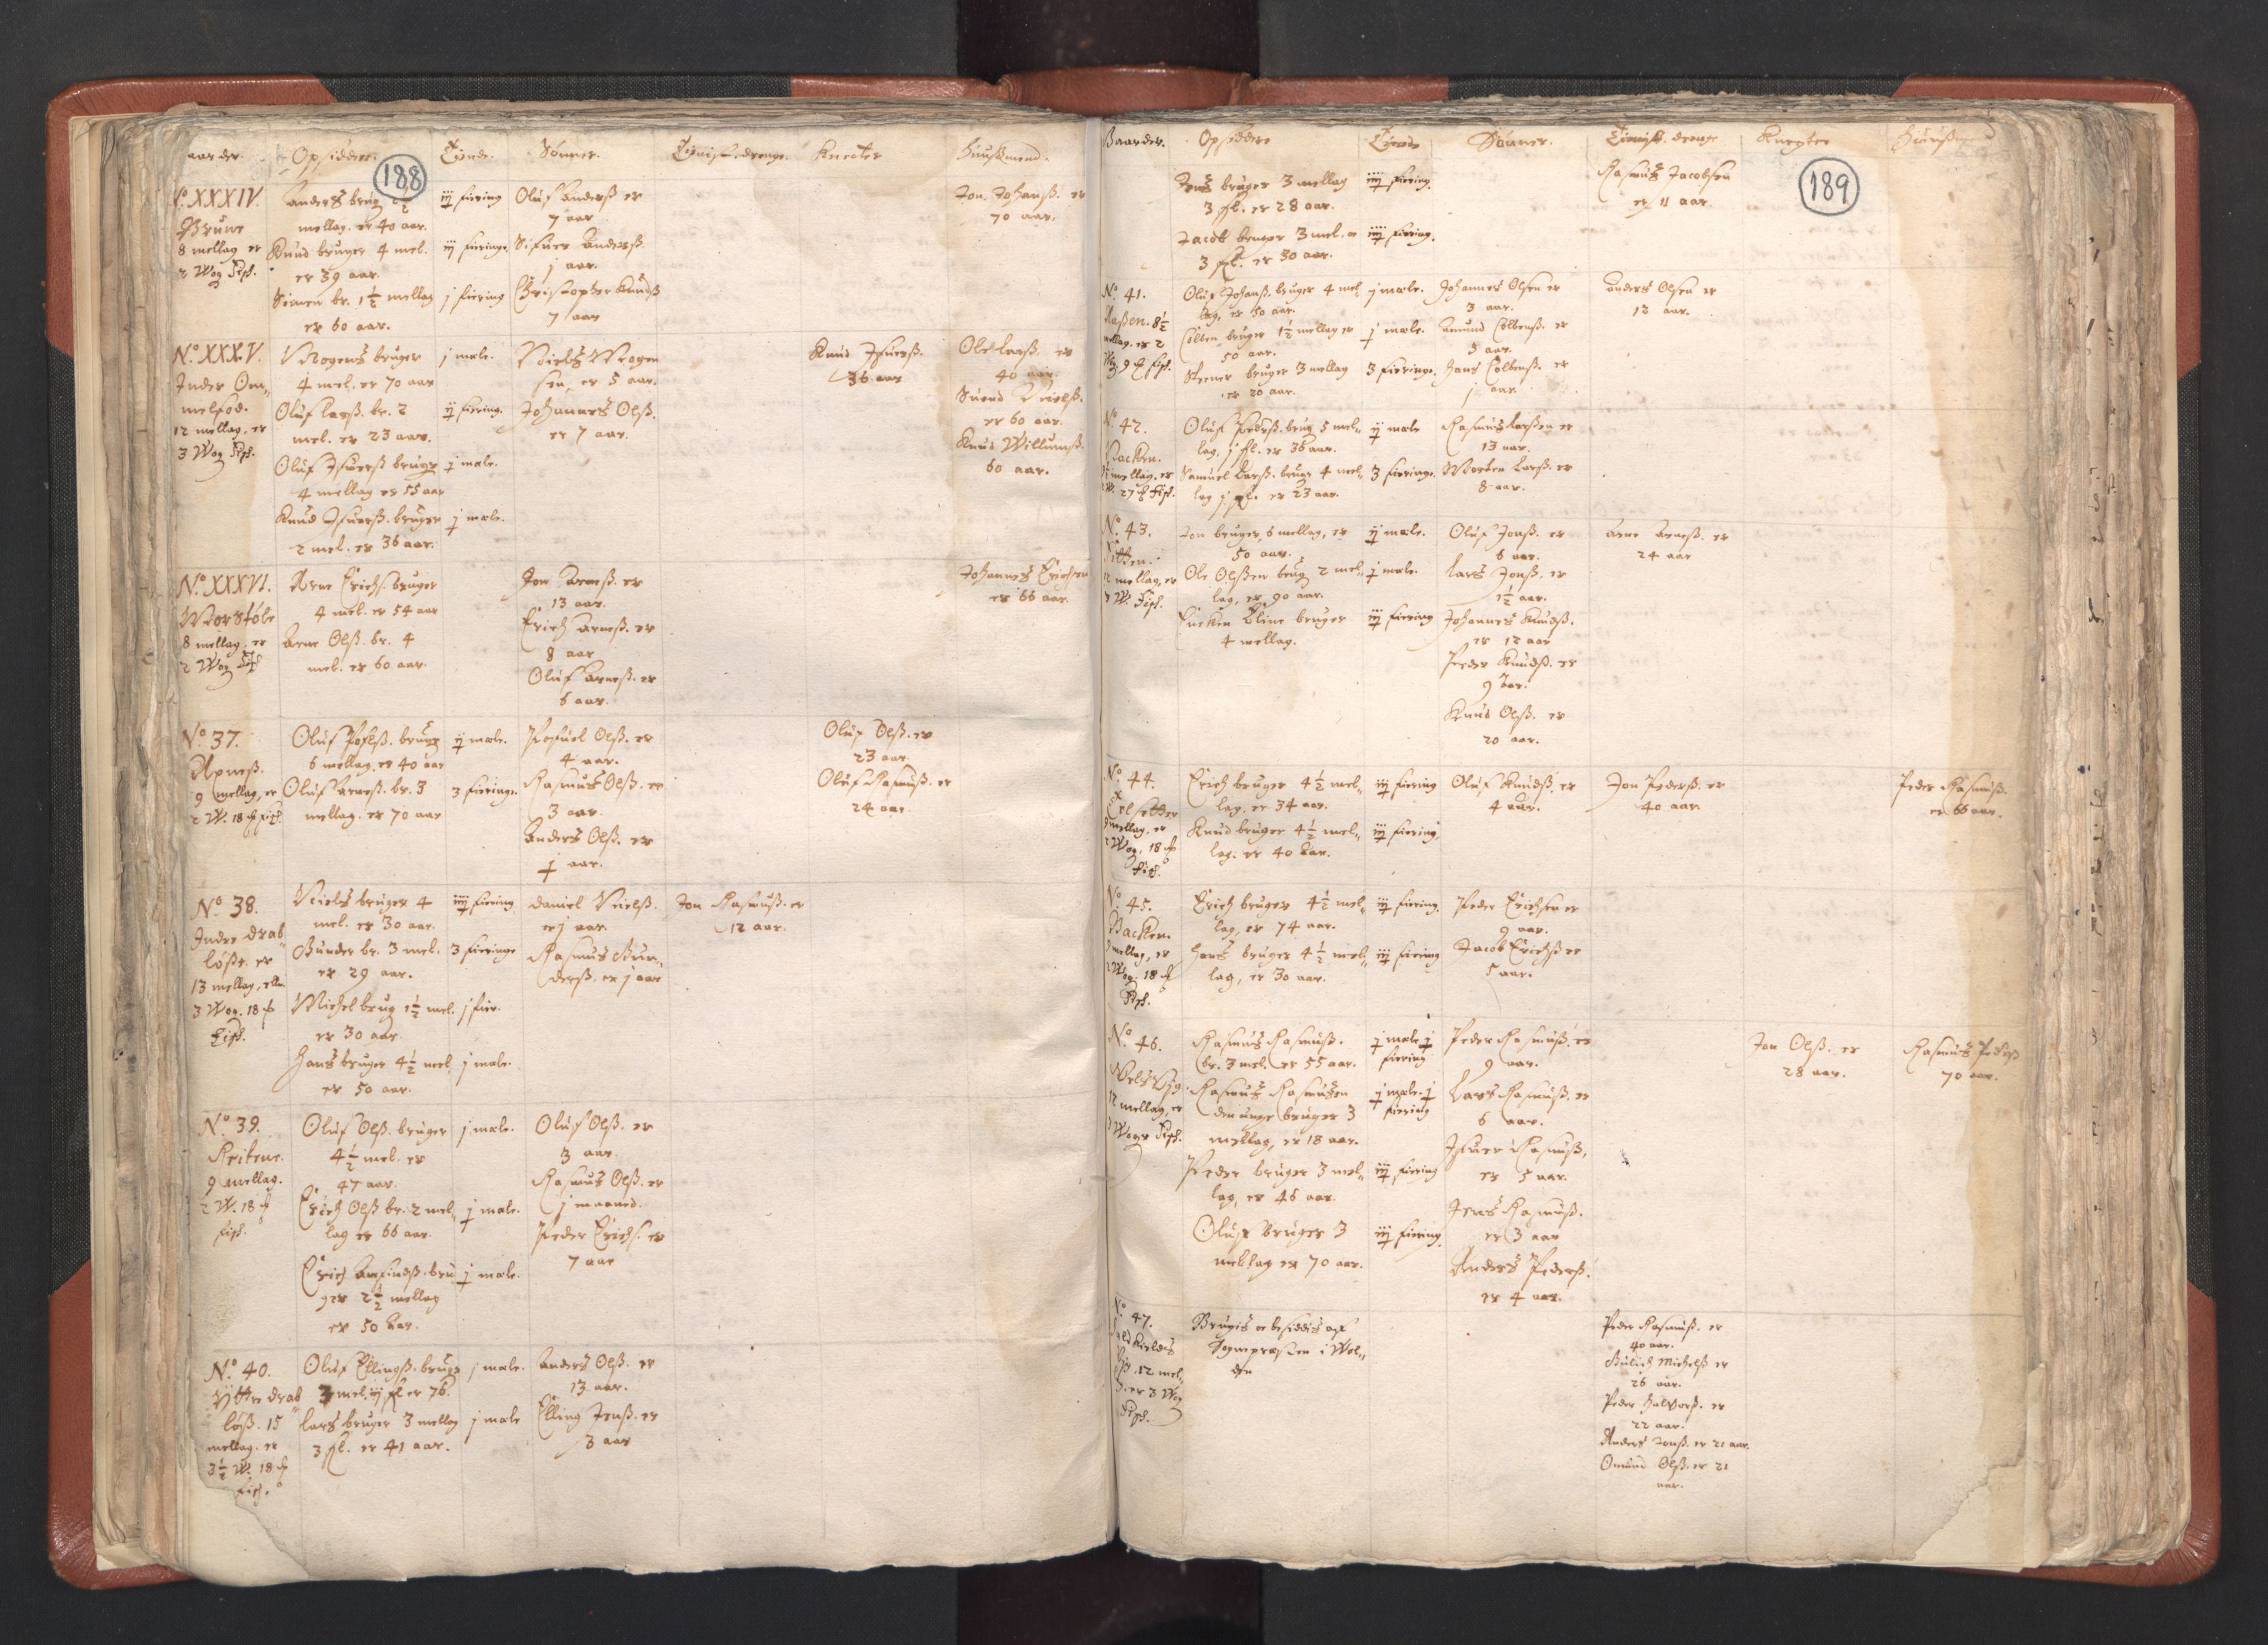 188
aarder. Opsidder. Tiende. Sönner. Tienist. drenge. Knecter Huußmend.
No. XXXIV.
Brune
8 mellag er
2 Wog Fisk.
Anders brug 2½
mellag. er 40 aar.
Knud bruger 4 mel.
er 39 aar.
Simen br. 1½ mellag
er 60 aar.
iij fiering
iij fieringe
j fiering
Oluf Anderß er
7 aar
Sifuer Anderß.
j aar.
Christopher Knudß
7 aar
Jon Johanß. er
70 aar.
No. XXXV.
Inder Om„
melfod.
12 mellag, er
3 Wog Fisk.
Mogens bruger
4 mel. er 70 aar
Oluf Larß. br. 2
mel. er 23 aar.
Oluf Ifuerß bruger
4 mellag er 55 aar
Knud Ifuerß. bruger
2 mel. er 36 aar.
j male.
ij fiering.
j male.
j male.
Niels Mogen
sen, er 5 aar.
Johannes Olß.
er 7 aar.
Knud Ifuerß.
36 aar
Ole Larß. er
40 aar.
Suend Nielß.
er 60 aar.
Knud Willumß.
60 aar.
No. XXXVI.
Morstöle
8 mellag, er
2 Wog Fisk
Arne Erichs. bruger
4 mel. er 54 aar
Arne Olß. br. 4
mel. er 60 aar.
Jon Arneß. er
13 aar.
Erich Arneß. er
8 aar
Oluf Arneß. er
6 aar.
Johannes Erichsen
er 66 aar.
No. 37.
9 mellag, er
2 W. 18 Fisk.
Oluf Pofelß. bruger
6 mellag. er 40 aar
Oluf Arneß. br. 3
mellag. er 70 aar
ij male.
3 fieringe.
Pofuel Olß. er
4 aar.
Rasmus Olß. er
3 aar.
Anders Olß. er
j aar.
Oluf Olß. er
23 aar.
Oluf Rasmuß. er
24 aar.
No. 38.
Indre Drab„
löße. er
13 mellag, ell.
3 Wog. 18
Fisk.
Niels bruger 4
mel. er 30 aar.
Gunder br. 3 mel.
er 29 aar.
Michel brug 1½ mel.
er 30 aar.
Hans bruger 4½ mel
er 50 aar.
iiij fiering
3 fieringe
j fier.
j male.
Daniel Nielß.
er j aar.
Rasmus Gun„
derß. er j aar
Jon Rasmuß. er
12 aar.
No. 39.
Reitene.
9 mellag.
2 W. 18
fisk.
Oluf Olß. bruger
4½ mel. er
47 aar.
Erich Olß br. 2 mel„
lag er 66 aar.
Erich Amundß. bru
ger 2½ mellag
er 50 aar.
j male.
j male.
j male.
Oluf Olß. er
3 aar.
Rasmus Olß. er
j maaned.
Peder Erichs. er
7 aar
No. 40.
Yttre Drab„
löß. 15
mellag. er
3½ W. 18
Fisk.
Oluf Ellingß. bruger
3 mel. ij fl er 76.
Lars bruger 3 mellag
3 fl. er 41 aar.
j male.
j male
Anders Olß. er
13 aar.
Elling Jenß. er
3 aar
189
Gaarder. Opsiddere Tiende Sönner. Tienist. drenge Knegter Huußmend
Jens bruger 3 mellag
3 fl. er 28 aar.
Jacob bruger 3 mel. er
3 fl. er 30 aar.
iiij fiering.
iiij fiering.
Rasmus Jacobsen
er 11 aar.
No. 41.
mellag. er 2
W. 9 Fisk.
Oluf Johanß. bruger 4 mel„
lag, er 50 aar.
Colben bruger 1½ mellag er
50 aar.
Steener bruger 3 mellag
er 20 aar.
j male.
j male.
3 fieringe.
Johannes Olsen er
3 aar.
Amund Colbenß. er
3 aar.
Hans Colbenß. er
j aar
Anders Olsen er
12 aar.
No. 42.
Backen.
mellag. er
27 Fisk.
Oluf Pederß. brug 5 mel„
lag. j fl. er 36 aar.
Samuel Larß. bruger 4 mel„
lag j fl. er 23 aar.
ij male
3 fieringe.
Rasmus Larßen er
13 aar.
Morten Larß. er
8 aar.
No. 43.
12 mellag, er
3 W. Fisk.
Jon bruger 6 mellag, er
50 aar.
Ole Olßen brug 2 mel„
lag, er 90 aar.
Encken Eline bruger
4 mellag.
ij male.
j male.
iij fiering
Oluf Jonß. er
6 aar.
Lars Jonß. er
1½ aar.
Johannes Knudß.
er 12 aar
Peder Knudß. er
9 aar.
Knud Olß. er
20 aar.
Arne Arneß. er
24 aar
No. 44.
mellag, er
2 Wog, 18
Fisk.
Erich bruger 4½ mel„
lag. er 34 aar.
Knud bruger 4½ mel„
lag. er 40 aar.
iij fiering
iij fiering
Oluf Knudß. er
4 aar.
Jon Pederß. er
40 aar.
Peder Rasmuß.
er 66 aar.
No. 45.
Backen.
9 mellag, er
2 Wog. 18
Fisk.
Erich bruger 4½ mel„
lag, er 74 aar.
Hans bruger 4½ mel„
lag, er 30 aar.
iij fiering.
iij fiering
Peder Erichsen er
9 aar.
Jacob Erichß er
5 aar.
No. 46.
12 mellag, er
3 Woger Fisk.
Rasmus Rasmuß.
br. 3 mel. er 55 aar.
Rasmus Rasmußen
den unge bruger 3
mellag, er 18 aar.
Peder bruger 3 mel„
lag, er 46 aar.
Oluf bruger 3
mellag er 70 aar.
j male j
fiering
j male. j
fiering
iij fiering
iij fiering.
Peder Rasmuß. er
9 aar.
Lars Rasmuß. er
6 aar.
Ifuer Rasmuß,
er 5 aar.
Jens Rasmuß.
er 3 aar
Anders Pederß.
er 4 aar.
Jon Olß. er
28 aar.
Rasmus Pederß
70 aar.
No. 47.
12 mel„
er 3 Wog
Fisk.
Brugis oc besiddis af
Sognepresten i Wol„
den
Peder Rasmuß. er
40 aar.
Gulich Michelß er
26 aar.
Peder Halvorß. er
22 aar.
Anders Jonß. er 21 aar.
Omund Olß. er 21
aar.